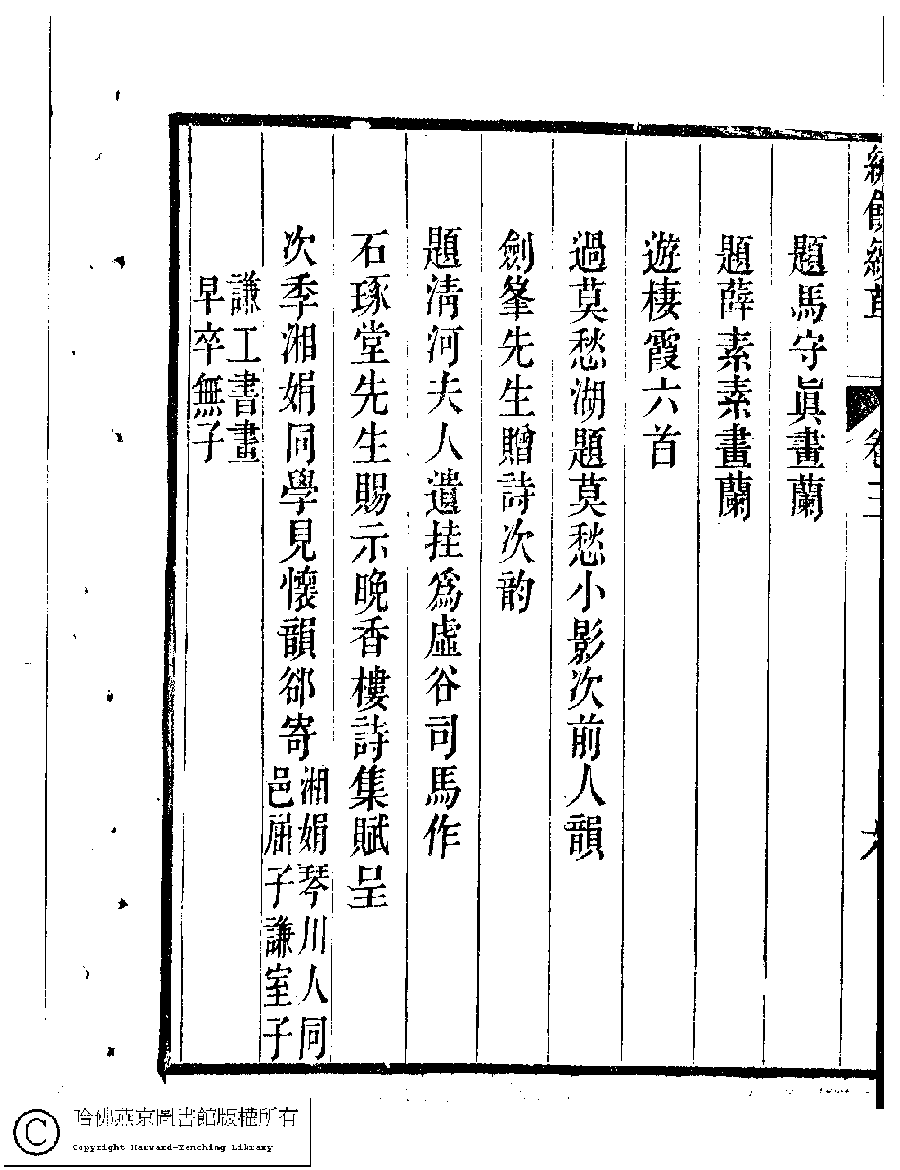 卷三
題馬守眞畫蘭
題薛素素畫蘭
遊棲霞六首
過莫愁湖題莫愁小影次前人韻
劍峯先生贈詩次韵
題淸河夫人遺挂爲虛谷司馬作
石琢堂先生賜示晩香樓詩集賦呈
次季湘娟同學見懷韻郤寄
湘娟琴川人同
邑屈子謙室子
謙工書畫
早卒無子
哈佛燕京圖書館版權所有
Copyright Harvard-Yenching Library